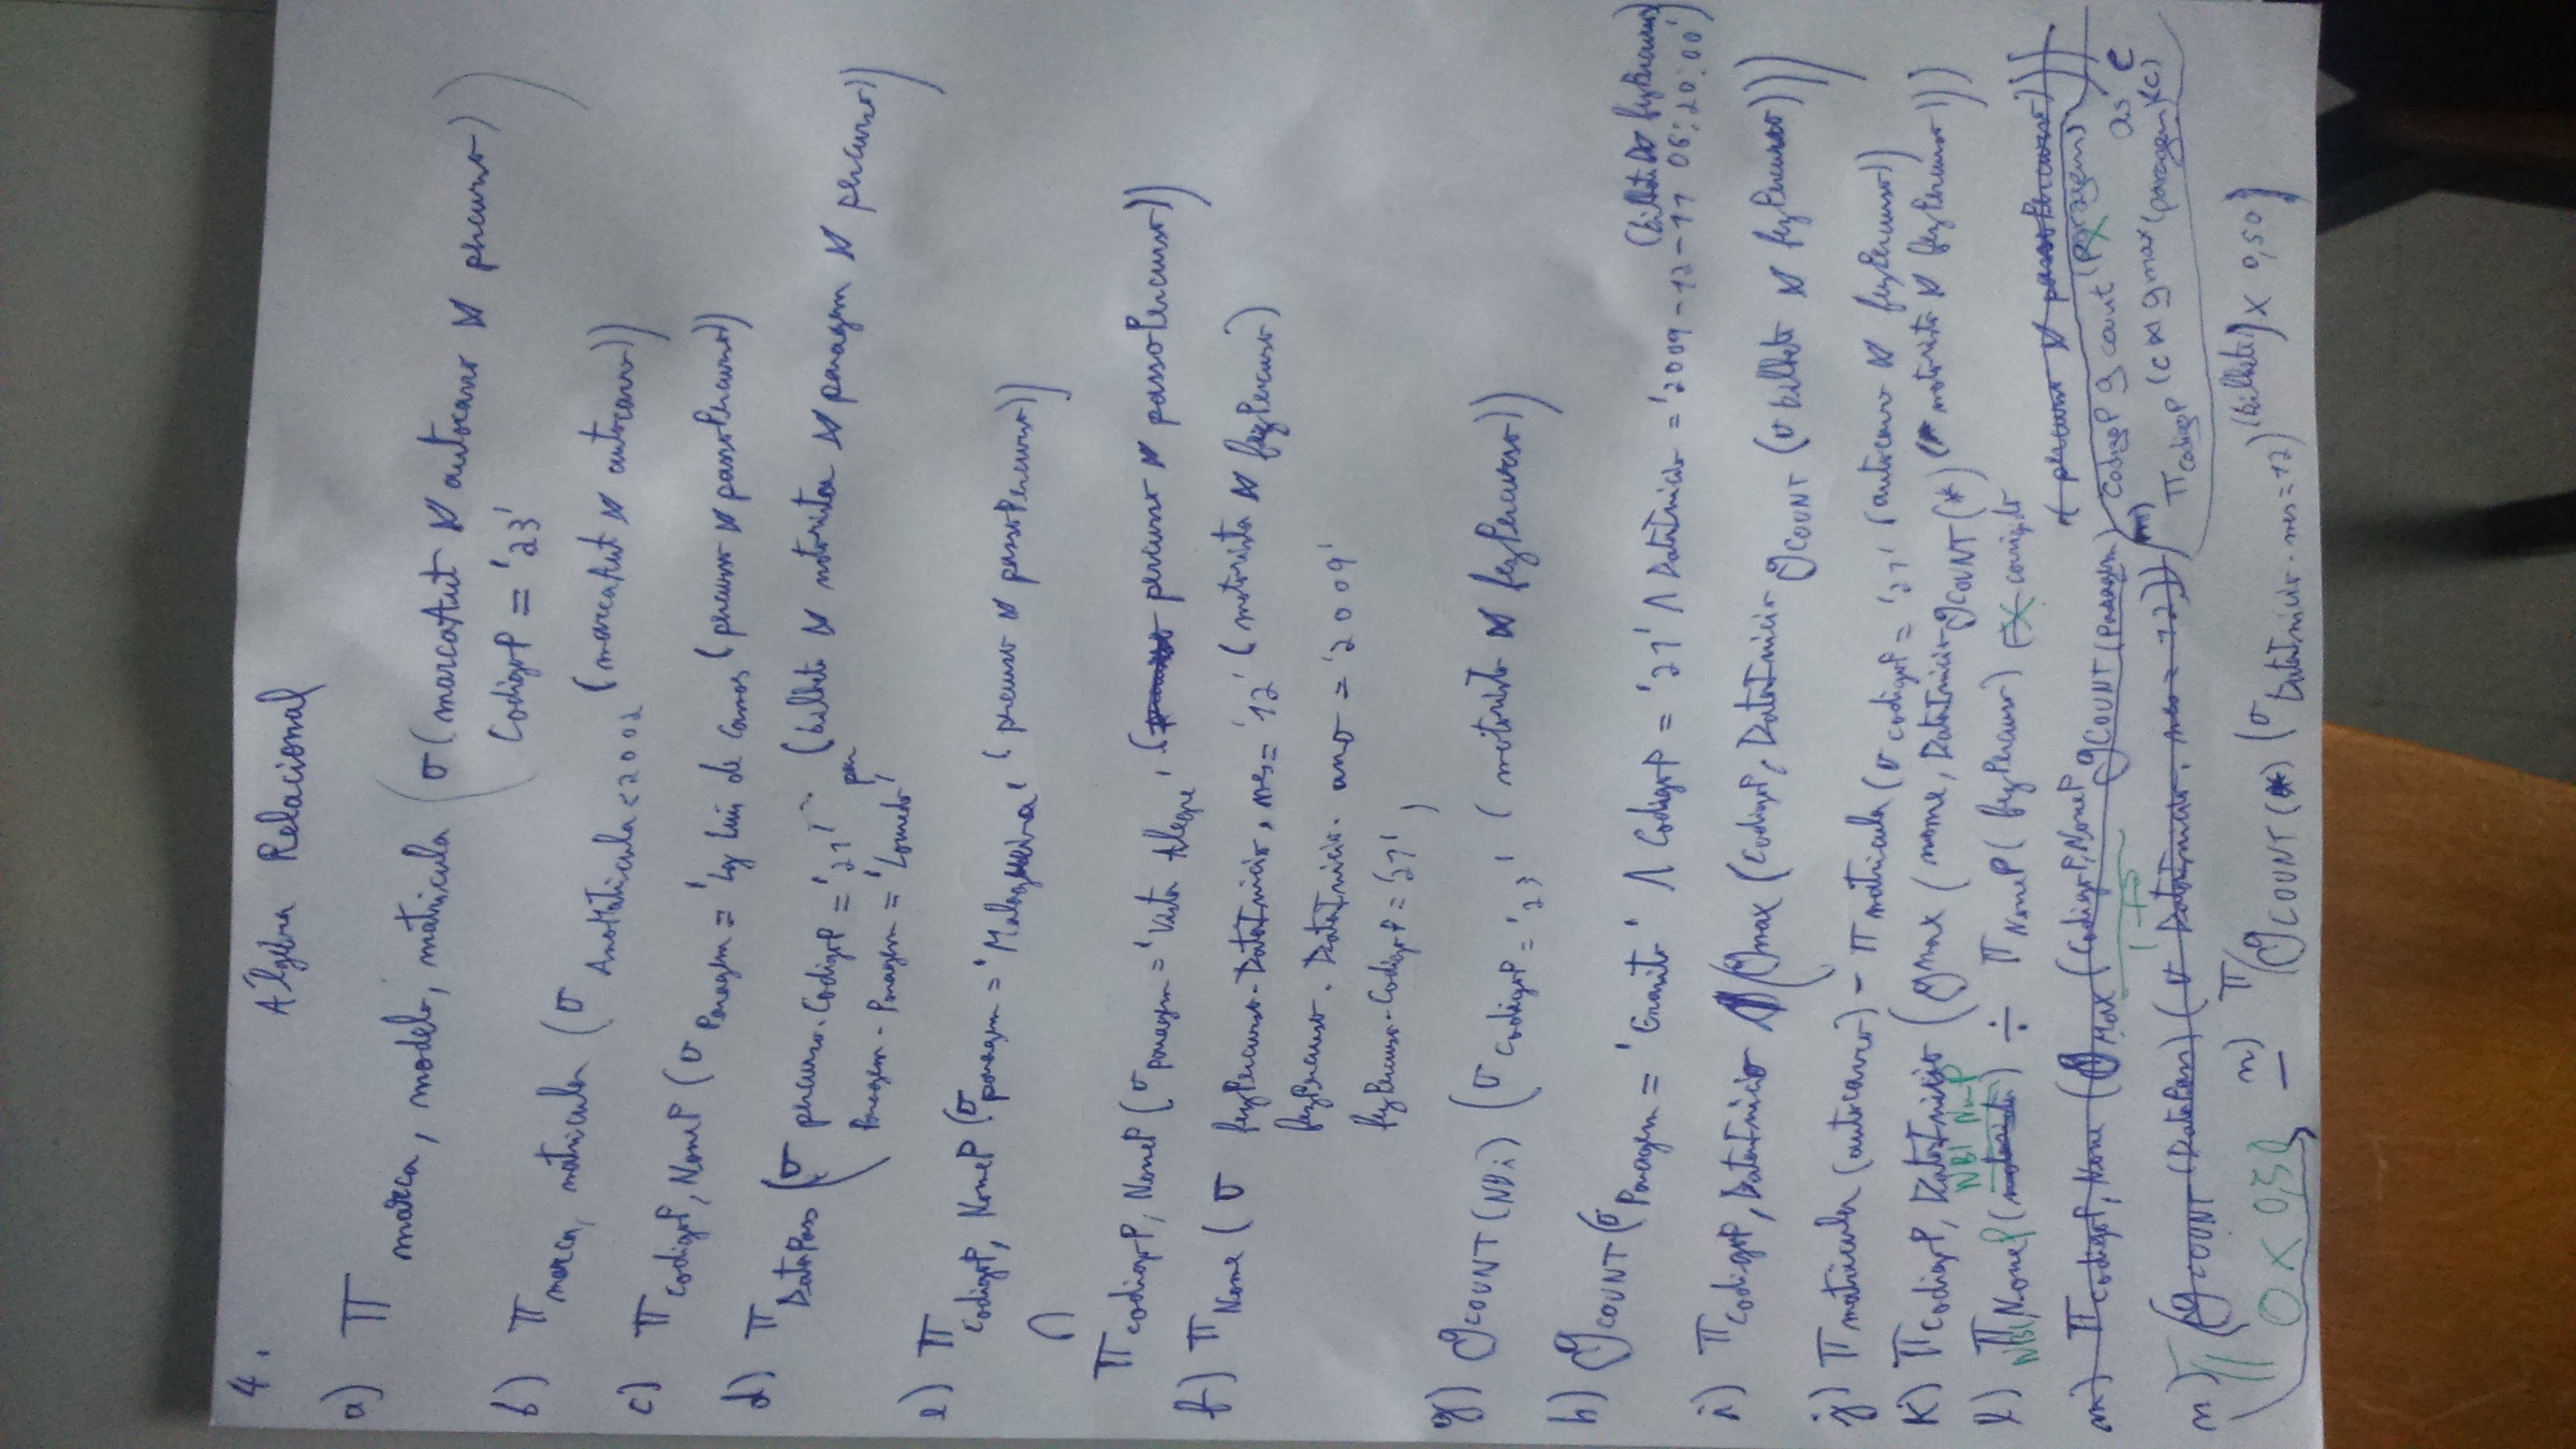 4.
Álgebra Relacional
a) π marca, modelo, matricula (σ (marcaAut ⋈ autocarro ⋈ percurso)
CodigoP = '23' )
b) π marca, matricula (σ AnoMatricula < 2002 (marcaAut ⋈ autocarro))
c) π CodigoP, NomeP (σ Paragem = 'Lg Luis de Camoes (percurso ⋈ passoPercurso))
d) π DataPass (σ percurso.CodigoP = '21' (bilhete ⋈ motorista ⋈ paragem ⋈ percurso))
Paragem - Paragem = 'Louredo'
e) π CodigoP, NomeP (σ paragem = 'Malagueira' (percurso ⋈ passoPercurso))
∩
π codigoP, NomeP (σ paragem = 'Vista Alegre' ( percurso ⋈ passoPercurso))
f) π Nome (σ fezPercurso.DataInicio.mes = '12' (motorista ⋈ fezPercurso)
fezPercurso.DataInicio.ano = '2009'
fezPercurso.CodigoP = '21' )
g) g COUNT(NBi) (σ CodigoP = '23' (motorista ⋈ fezPercurso))
h) g COUNT (σ Paragem = 'Granito' ∧ CodigoP = '21' ∧ DataInicio = '2009-12-11 06:20:00' (bilhete ⋈ fezPercurso)
i) π CodigoP, DataInicio (g max (CodigoP, DataInicio g COUNT (σ bilhete ⋈ fezPercurso)))
j) π matricula (autocarro) - π matricula (σ codigoP = '21' (autocarro ⋈ fezPercurso))
k) π CodigoP, DataInicio (g max (nome, DataInicio g COUNT(*) ( motorista ⋈ fezPercurso)))
NBI NomeP
l) π NBI, NomeP (motorista) ÷ π NomeP (fezPercurso) corrigido
m) π CodigoP, Nome (g Max (CodigoP, NomeP g COUNT (paragem) ( percurso ⋈ passoPercurso)))
CodigoP g count (paragem) as c
m) π codigoP (c ⋈ g max (paragem)(c)
n) (g COUNT (DataPass) (σ DataInicio.mes = 12))
π () x 0,50
n) π (g COUNT(*) (σ DataInicio.mes = 12) (bilhete) x 0,50)